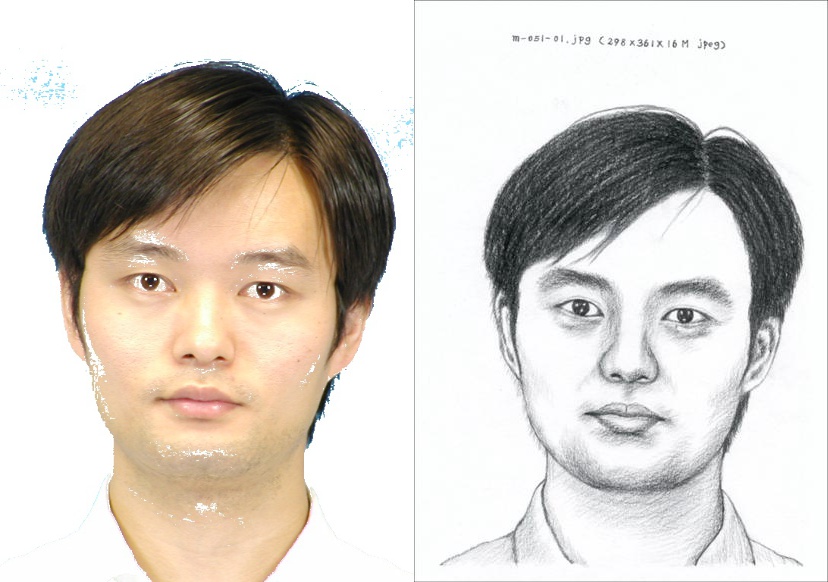 m-051-01.jpg (298x361x16M jpeg)